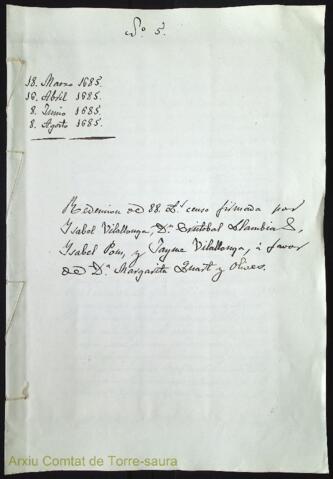 Nº 5.
18. Marzo 1685.
16. Abril 1685.
8. Junio 1685.
8. Agosto 1685.
Redencion de 88. Lˢ censo firmada por
Isabel Vilallonga, Dⁿ Cristobal
Isabel Pons, y Jayme Vilallonga, à favor
de Dª Margarita Quart y Olives.
Arxiu Comtat de Torre-saura